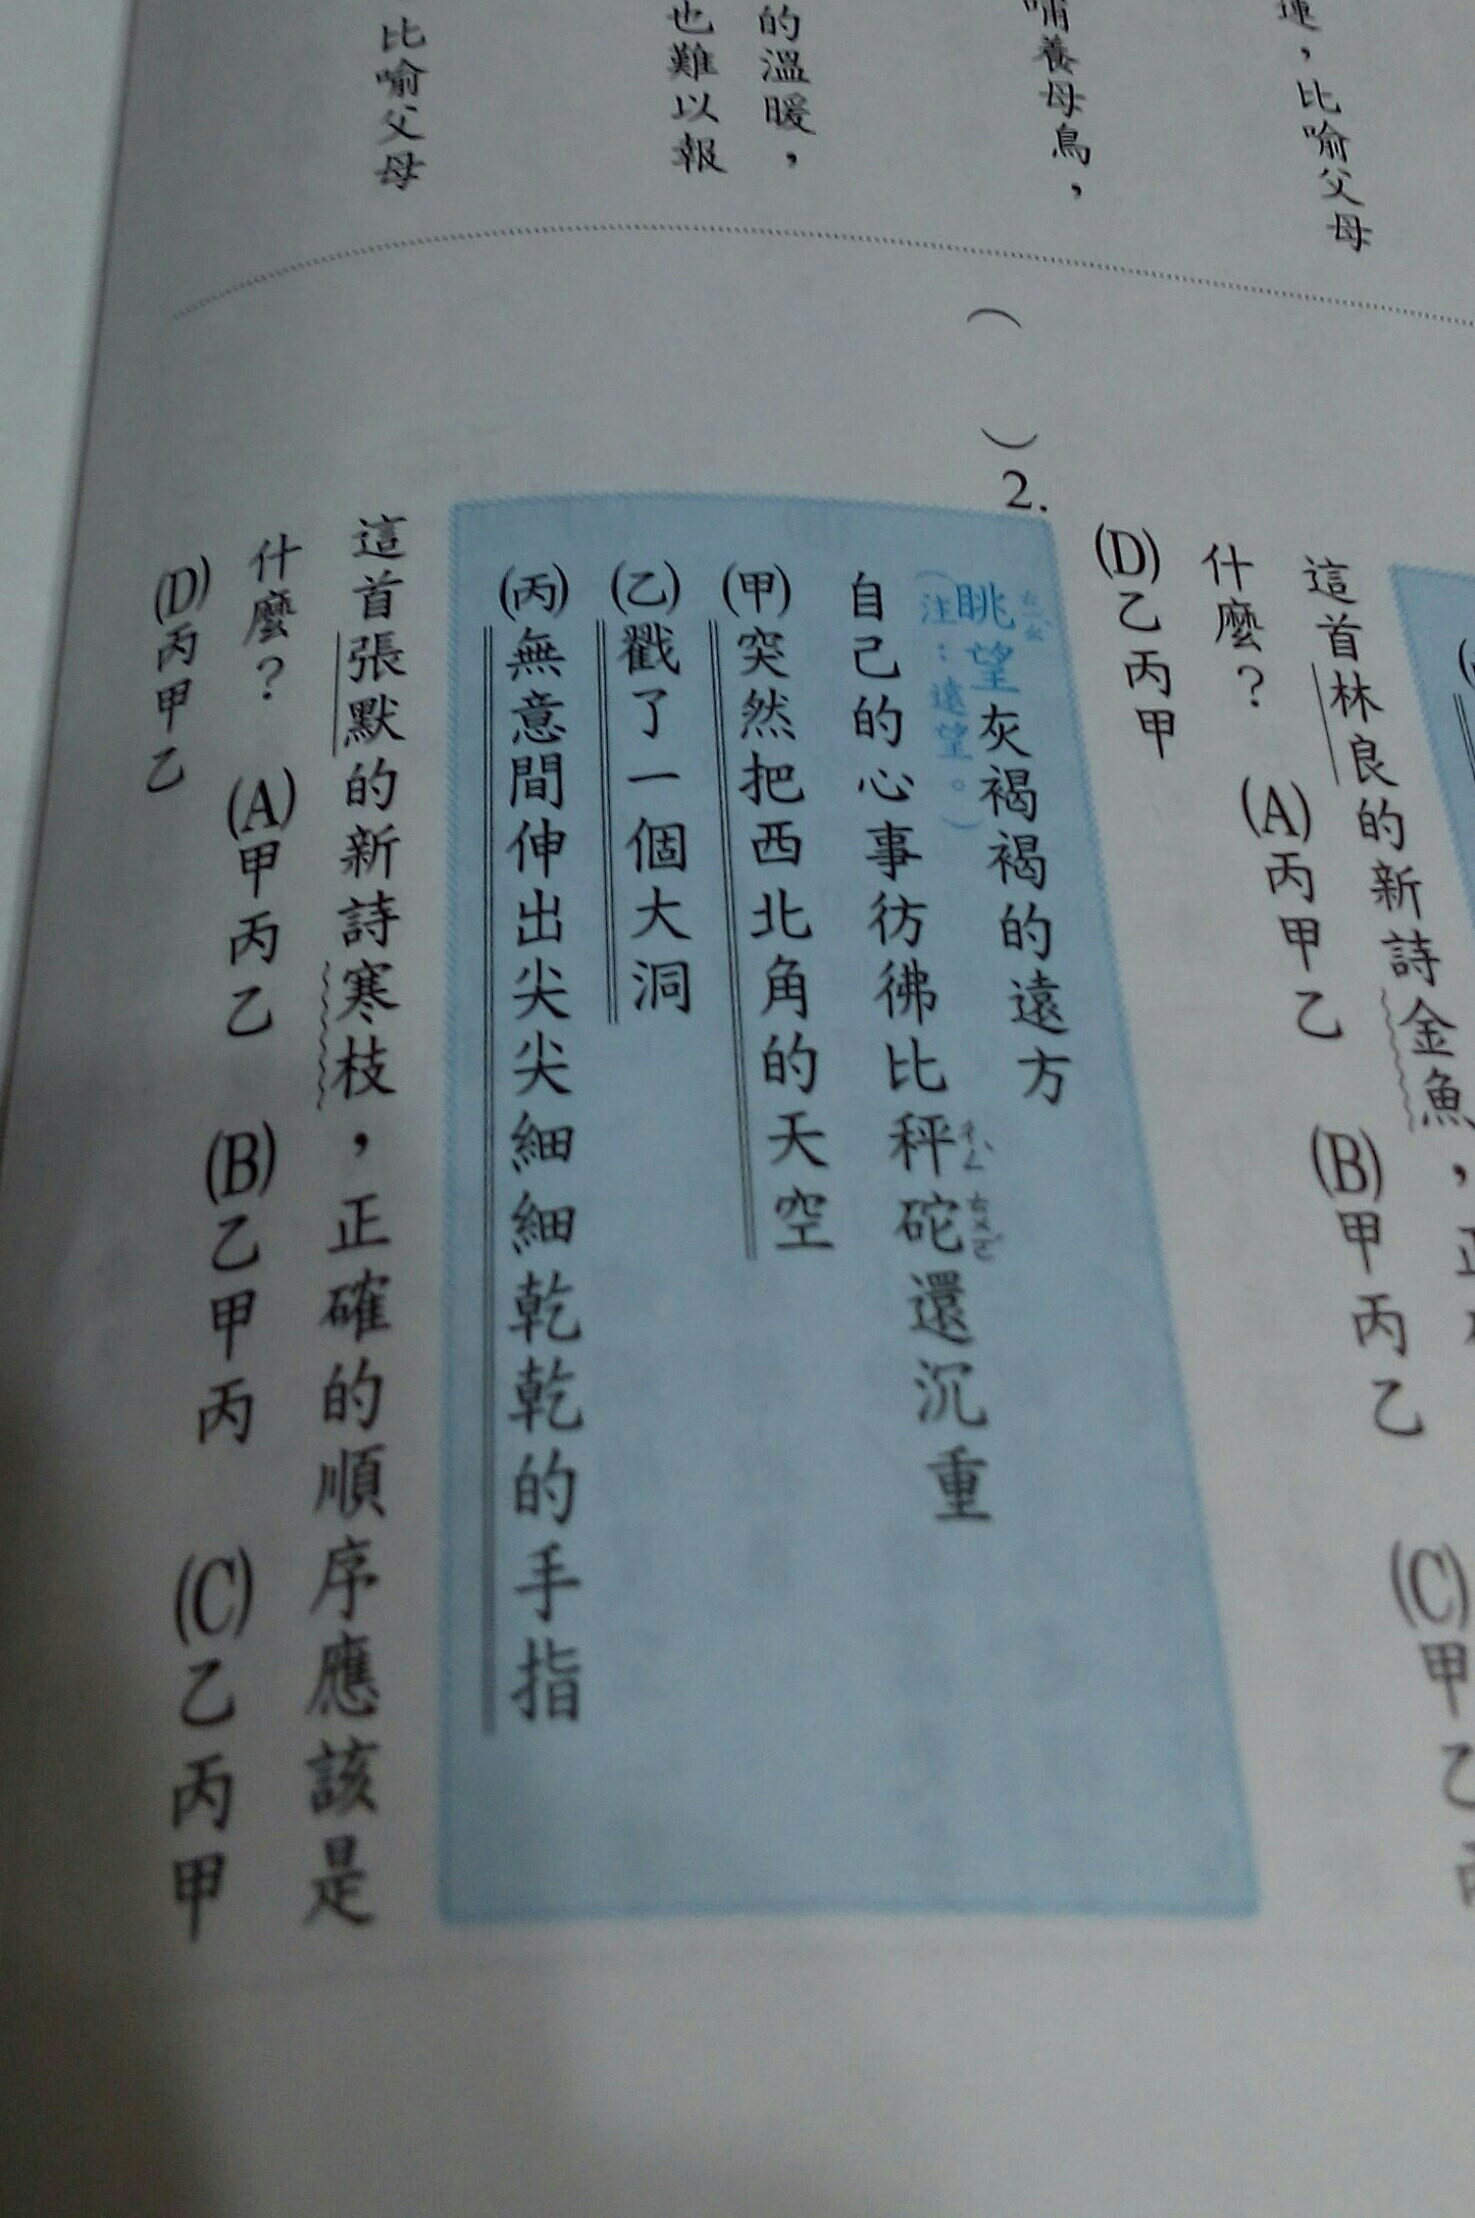 運，比喻父母
哺養母鳥，
的溫暖，
也難以報
比喻父母
這首林良的新詩金魚，正
什麼？ (A)丙甲乙 (B)甲丙乙 (C)甲乙
(D)乙丙甲
( )2.
眺望灰褐褐的遠方
ㄊㄧㄠˋ
（注：遠望。）
自己的心事彷彿比秤砣還沉重
ㄔㄥˋ ㄊㄨㄛˊ
(甲)突然把西北角的天空
(乙)戳了一個大洞
(丙)無意間伸出尖尖細細乾乾的手指
這首張默的新詩寒枝，正確的順序應該是
什麼？ (A)甲丙乙 (B)乙甲丙 (C)乙丙甲
(D)丙甲乙